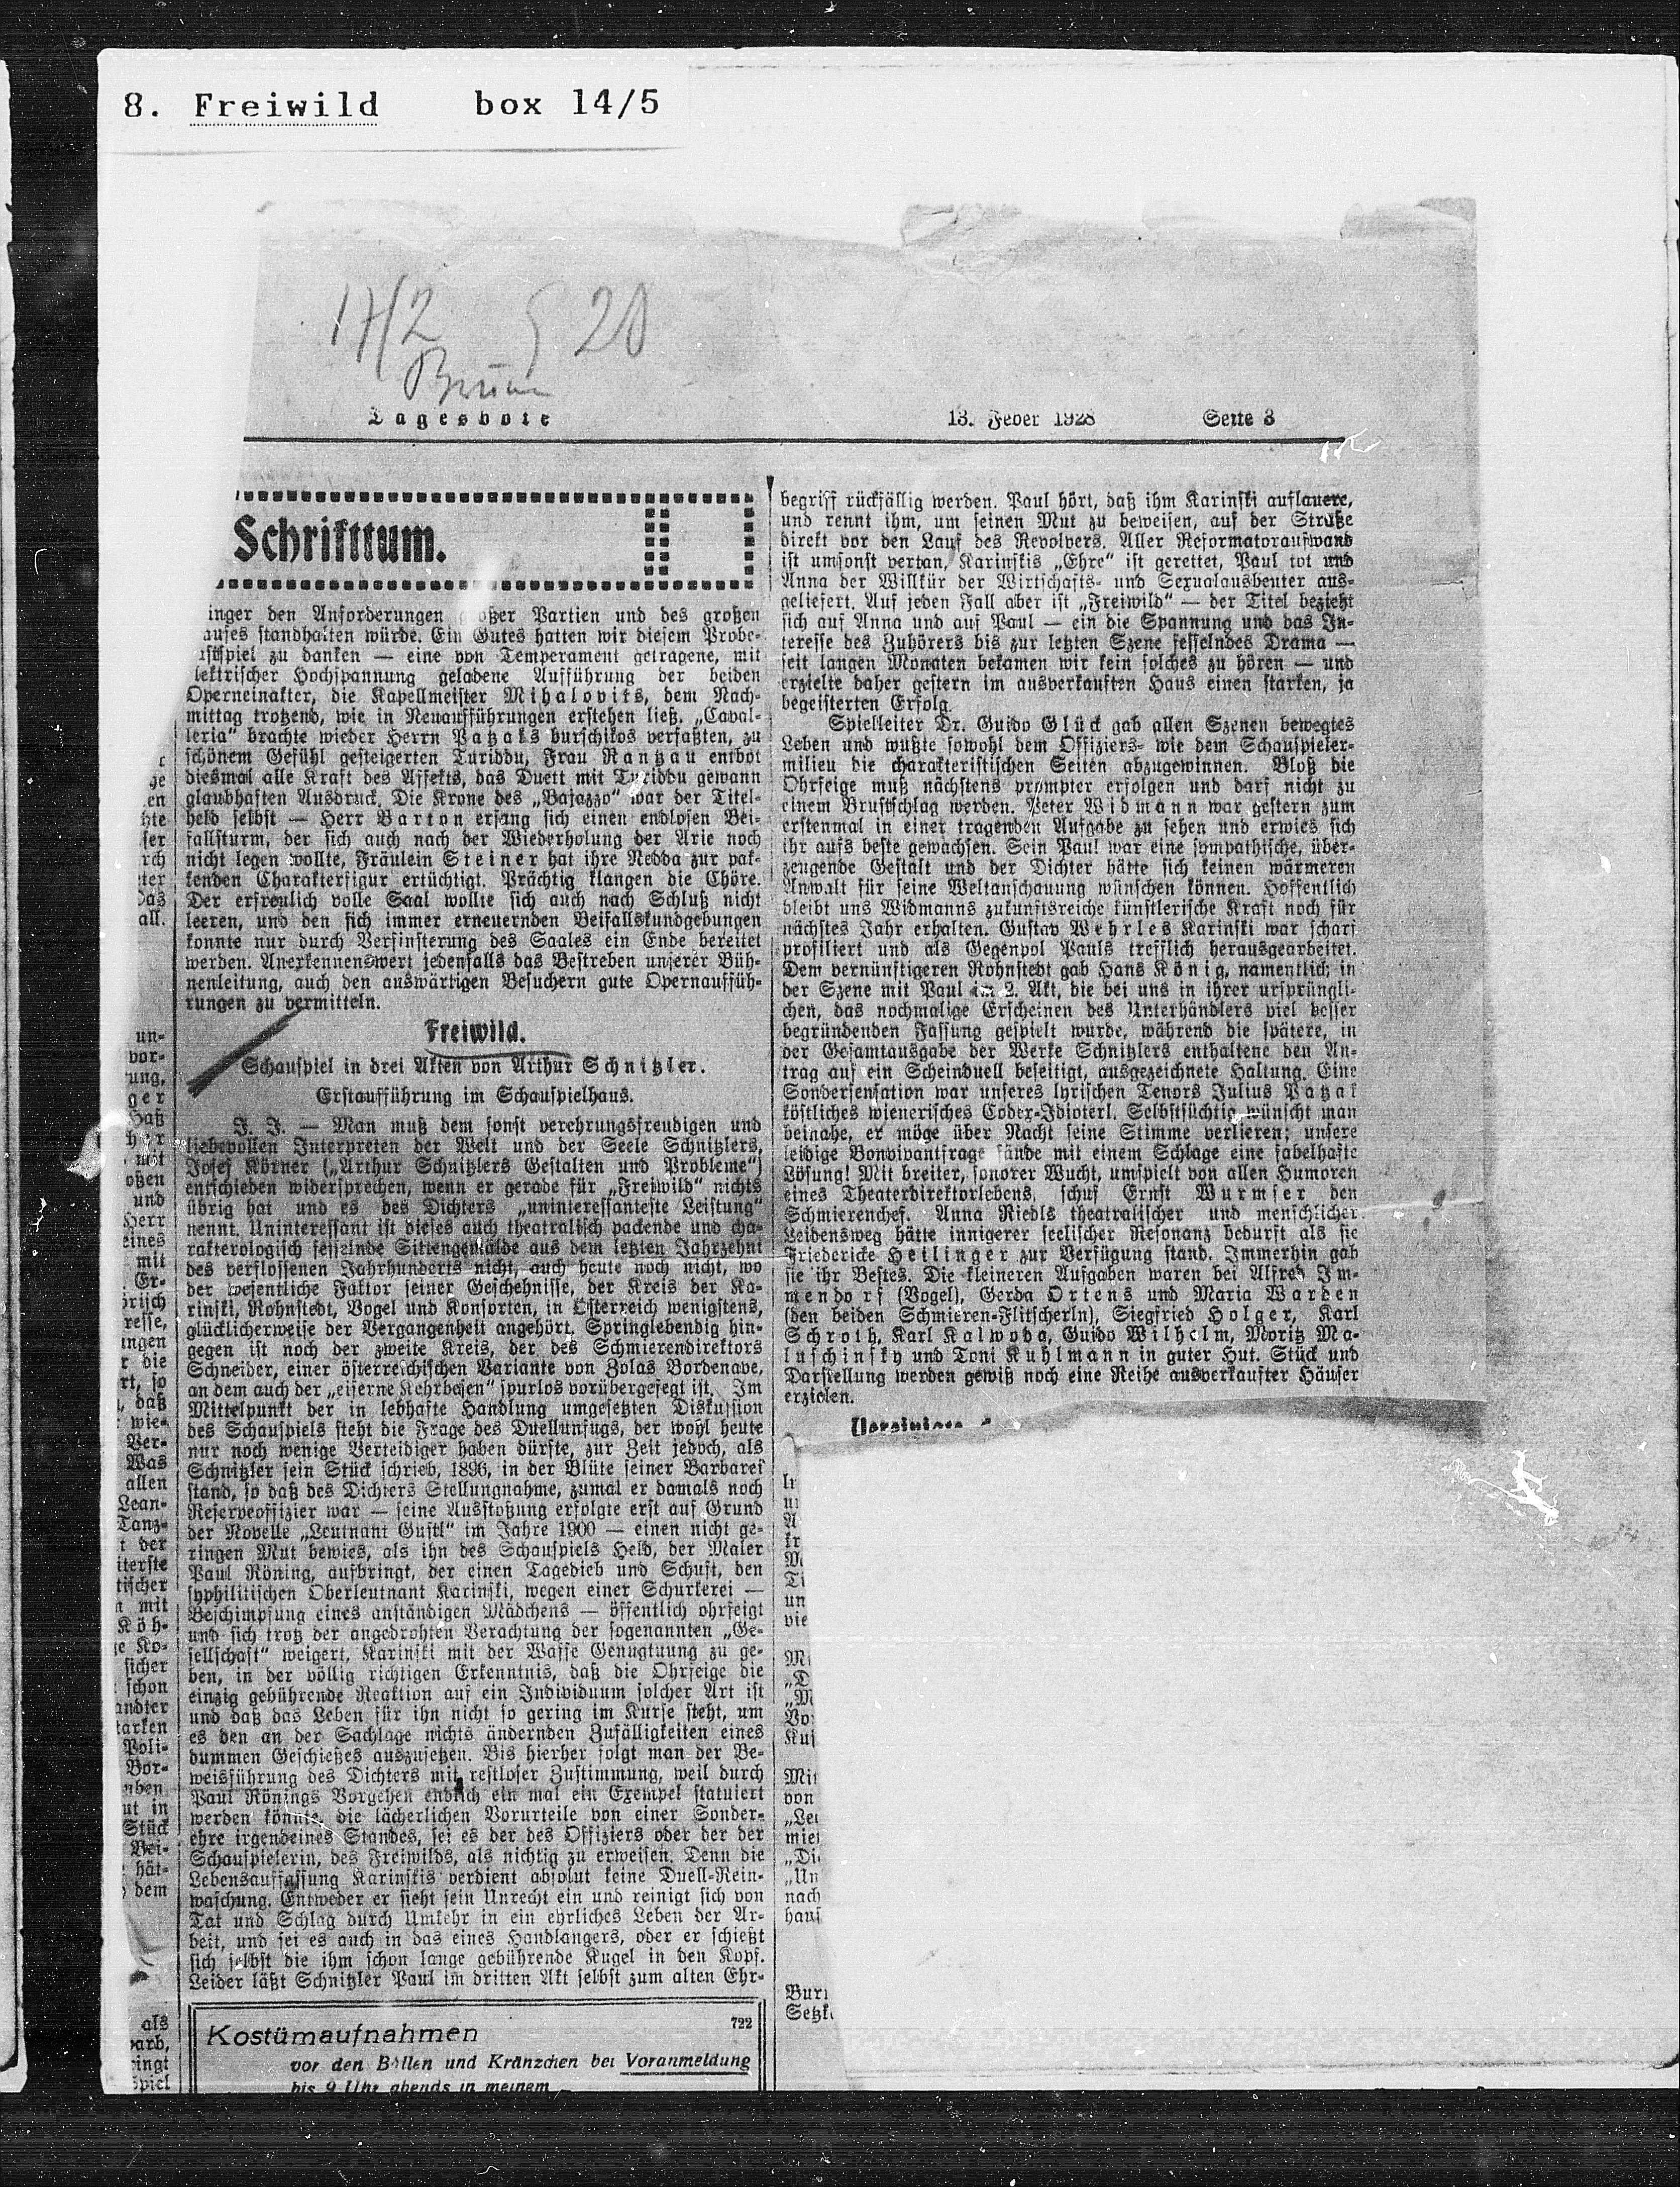 8. Freiwild box 14/5
Brünn
Tagesbote 13. Feber 1928 Seite 3
Schrifttum.
inger den Anforderungen großer Partien und des großen
auses standhalten würde. Ein Gutes hatten wir diesem Probe-
spiel zu danken — eine von Temperament getragene, mit
lektrischer Hochspannung geladene Aufführung der beiden
Operneinakter, die Kapellmeister Mihalovits, dem Nach-
mittag trotzend, wie in Neuaufführungen erstehen ließ. „Caval-
leria“ brachte wieder Herrn Patzaks burschikos verfaßten, zu
schönem Gefühl gesteigerten Turiddu, Frau Rantzau entbot
diesmal alle Kraft des Affekts, das Duett mit Turiddu gewann
glaubhaften Ausdruck. Die Krone des „Bajazzo“ war der Titel-
held selbst — Herr Barton ersang sich einen endlosen Bei-
fallsturm, der sich auch nach der Wiederholung der Arie noch
nicht legen wollte, Fräulein Steiner hat ihre Nedda zur pak-
kenden Charakterfigur ertüchtigt. Prächtig klangen die Chöre.
Der erfreulich volle Saal wollte sich auch nach Schluß nicht
leeren, und den sich immer erneuernden Beifallskundgebungen
konnte nur durch Verfinsterung des Saales ein Ende bereitet
werden. Anerkennenswert jedenfalls das Bestreben unserer Büh-
nenleitung, auch den auswärtigen Besuchern gute Opernauffüh-
rungen zu vermitteln.
Freiwild.
Schauspiel in drei Akten von Arthur Schnitzler.
Erstaufführung im Schauspielhaus.
J. J. — Man muß dem sonst verehrungsfreudigen und
liebevollen Interpreten der Welt und der Seele Schnitzlers,
Josef Körner („Arthur Schnitzlers Gestalten und Probleme“)
entschieden widersprechen, wenn er gerade für „Freiwild“ nichts
übrig hat und es des Dichters „uninteressanteste Leistung“
nennt. Uninteressant ist dieses auch theatralisch packende und cha-
rakterologisch fesselnde Sittengemälde aus dem letzten Jahrzehnt
des verflossenen Jahrhunderts nicht, auch heute noch nicht, wo
der wesentliche Faktor seiner Geschehnisse, der Kreis der Ka-
rinski, Rohnstedt, Vogel und Konsorten, in Österreich wenigstens,
glücklicherweise der Vergangenheit angehört. Springlebendig hin-
gegen ist noch der zweite Kreis, der des Schmierendirektors
Schneider, einer österreichischen Variante von Zolas Bordenave,
an dem auch der „eiserne Kehrbesen“ spurlos vorübergefegt ist. Im
Mittelpunkt der in lebhafte Handlung umgesetzten Diskussion
des Schauspiels steht die Frage des Duellunfugs, der wohl heute
nur noch wenige Verteidiger haben dürfte, zur Zeit jedoch, als
Schnitzler sein Stück schrieb, 1896, in der Blüte seiner Barbarei
stand, so daß des Dichters Stellungnahme, zumal er damals noch
Reserveoffizier war — seine Ausstoßung erfolgte erst auf Grund
der Novelle „Leutnant Gustl“ im Jahre 1900 — einen nicht ge-
ringen Mut bewies, als ihn des Schauspiels Held, der Maler
Paul Röning, aufbringt, der einen Tagedieb und Schuft, den
syphilitischen Oberleutnant Karinski, wegen einer Schurkerei —
Beschimpfung eines anständigen Mädchens — öffentlich ohrfeigt
und sich trotz der angedrohten Verachtung der sogenannten „Ge-
sellschaft“ weigert, Karinski mit der Waffe Genugtuung zu ge-
ben, in der völlig richtigen Erkenntnis, daß die Ohrfeige die
einzig gebührende Reaktion auf ein Individuum solcher Art ist
und daß das Leben für ihn nicht so gering im Kurse steht, um
es den an der Sachlage nichts ändernden Zufälligkeiten eines
dummen Geschießes auszusetzen. Bis hierher folgt man der Be-
weisführung des Dichters mit restloser Zustimmung, weil durch
Paul Rönings Vorgehen endlich ein mal ein Exempel statuiert
werden könnte, die lächerlichen Vorurteile von einer Sonder-
ehre irgendeines Standes, sei es der des Offiziers oder der der
Schauspielerin, des Freiwilds, als nichtig zu erweisen. Denn die
Lebensauffassung Karinskis verdient absolut keine Duell-Rein-
waschung. Entweder er sieht sein Unrecht ein und reinigt sich von
Tat und Schlag durch Umkehr in ein ehrliches Leben der Ar-
beit, und sei es auch in das eines Handlangers, oder er schießt
sich selbst die ihm schon lange gebührende Kugel in den Kopf.
Leider läßt Schnitzler Paul im dritten Akt selbst zum alten Ehr-
Kostümaufnahmen 722
vor den Bällen und Kränzchen bei Voranmeldung
bis 9 Uhr abends in meinem
begriff rückfällig werden. Paul hört, daß ihm Karinski auflauere,
und rennt ihm, um seinen Mut zu beweisen, auf der Straße
direkt vor den Lauf des Revolvers. Aller Reformatoraufwand
ist umsonst vertan, Karinskis „Ehre“ ist gerettet, Paul tot und
Anna der Willkür der Wirtschafts- und Sexualausbeuter aus-
geliefert. Auf jeden Fall aber ist „Freiwild“ — der Titel bezieht
sich auf Anna und auf Paul — ein die Spannung und das In-
teresse des Zuhörers bis zur letzten Szene fesselndes Drama —
seit langen Monaten bekamen wir kein solches zu hören — und
erzielte daher gestern im ausverkauften Haus einen starken, ja
begeisterten Erfolg.
Spielleiter Dr. Guido Glück gab allen Szenen bewegtes
Leben und wußte sowohl dem Offiziers- wie dem Schauspieler-
milieu die charakteristischen Seiten abzugewinnen. Bloß die
Ohrfeige muß nächstens prompter erfolgen und darf nicht zu
einem Brustschlag werden. Peter Widmann war gestern zum
erstenmal in einer tragenden Aufgabe zu sehen und erwies sich
ihr aufs beste gewachsen. Sein Paul war eine sympathische, über-
zeugende Gestalt und der Dichter hätte sich keinen wärmeren
Anwalt für seine Weltanschauung wünschen können. Hoffentlich
bleibt uns Widmanns zukunftsreiche künstlerische Kraft noch für
nächstes Jahr erhalten. Gustav Wehrles Karinski war scharf
profiliert und als Gegenpol Pauls trefflich herausgearbeitet.
Dem vernünftigeren Rohnstedt gab Hans König, namentlich in
der Szene mit Paul im 2. Akt, die bei uns in ihrer ursprüngli-
chen, das nochmalige Erscheinen des Unterhändlers viel besser
begründenden Fassung gespielt wurde, während die spätere, in
der Gesamtausgabe der Werke Schnitzlers enthaltene den An-
trag auf ein Scheinduell beseitigt, ausgezeichnete Haltung. Eine
Sondersensation war unseres lyrischen Tenors Julius Patzak
köstliches wienerisches Codex-Idioterl. Selbstsüchtig wünscht man
beinahe, er möge über Nacht seine Stimme verlieren; unsere
leidige Bonvivantfrage fände mit einem Schlage eine fabelhafte
Lösung! Mit breiter, sonorer Wucht, umspielt von allen Humoren
eines Theaterdirektorlebens, schuf Ernst Wurmser den
Schmierenchef. Anna Riedls theatralischer und menschlicher
Leidensweg hätte innigerer seelischer Resonanz bedurft als sie
Friedericke Heilinger zur Verfügung stand. Immerhin gab
sie ihr Bestes. Die kleineren Aufgaben waren bei Alfred Im-
mendorf (Vogel), Gerda Ortens und Maria Warden
(den beiden Schmieren-Flitscherln), Siegfried Holger, Karl
Schroth, Karl Kalwoda, Guido Wilhelm, Moritz Ma-
luschinsky und Toni Kuhlmann in guter Hut. Stück und
Darstellung werden gewiß noch eine Reihe ausverkaufter Häuser
erzielen.